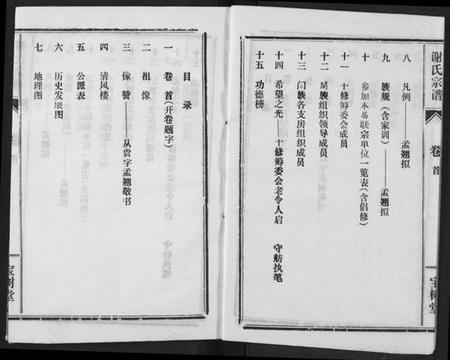 目录
一 卷首(开卷题字)
二 祖像
三 像赞——从贵字孟翘敬书
四 清风楼
五 公派表
六 历史发展图
七 地理图
宝树堂
谢氏宗谱
卷首
八 凡例——孟翘拟
九 族规(含家训)——孟翘拟
十 参加本届联宗单位一览表(含倡修)
十一 十修筹委会成员
十二 阖族组织领导成员
十三 阖族各支房组织成员
十四 希望之光——十修筹委会老令人启 守舫执笔
十五 功德榜
宝树堂